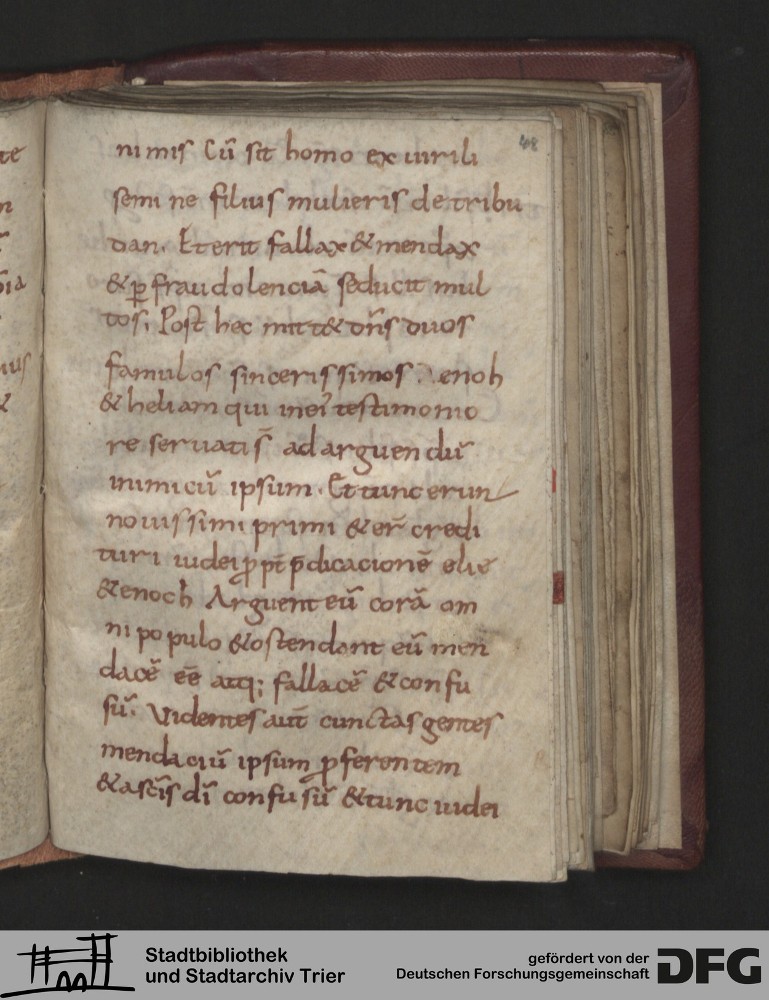 48
nimis Cū sit homo ex uirili
semi ne filius mulieris detribu
dan. Eterit fallax & mendax
& ꝑ fraudolenciā seducit mul
tos. Post hec mitt& dn̄s duos
famulos sincerissimos enoh
& heliam qui inei testimonio
re seruatis̄ adarguendū
inimicū ipsum. Ettunc erun
nouissimi primi & er̄ credi
turi iudei ꝓpt̄ p̄dicacionē elie
& enoch Arguent eū corā om
ni populo & ostendant eū men
dacē eē atq; fallacē & confu
sū. Videntes aut̄ cunctas gentes
mendaciū ipsum ꝓferentem
& asc̄is dī confusū & tunc iudei
te
n
ius
&
Stadtbibliothek
und Stadtarchiv Trier
gefördert von der
Deutschen Forschungsgemeinschaft
DFG